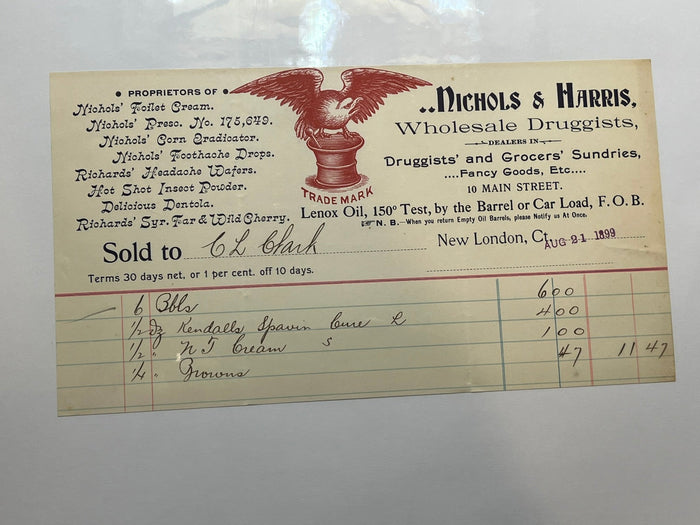 • PROPRIETORS OF •
Nichols' Toilet Cream.
Nichols' Presc. No. 175,649.
Nichols' Corn Eradicator.
Nichols' Toothache Drops.
Richards' Headache Wafers.
Hot Shot Insect Powder.
Delicious Dentola.
Richards' Syr. Tar & Wild Cherry.
TRADE MARK
..NICHOLS & HARRIS,
Wholesale Druggists,
DEALERS IN
Druggists' and Grocers' Sundries,
....Fancy Goods, Etc....
10 MAIN STREET.
Lenox Oil, 150° Test, by the Barrel or Car Load, F. O. B.
N. B.—When you return Empty Oil Barrels, please Notify us At Once.
Sold to C L Clark
New London, Ct. AUG 21 1899
Terms 30 days net, or 1 per cent. off 10 days.
6 Bbls 6 00
1/2 dz Kendalls Spavin Cure L 4 00
1/2 " N T Cream S 1 00
1/4 " Browns 47 11 47